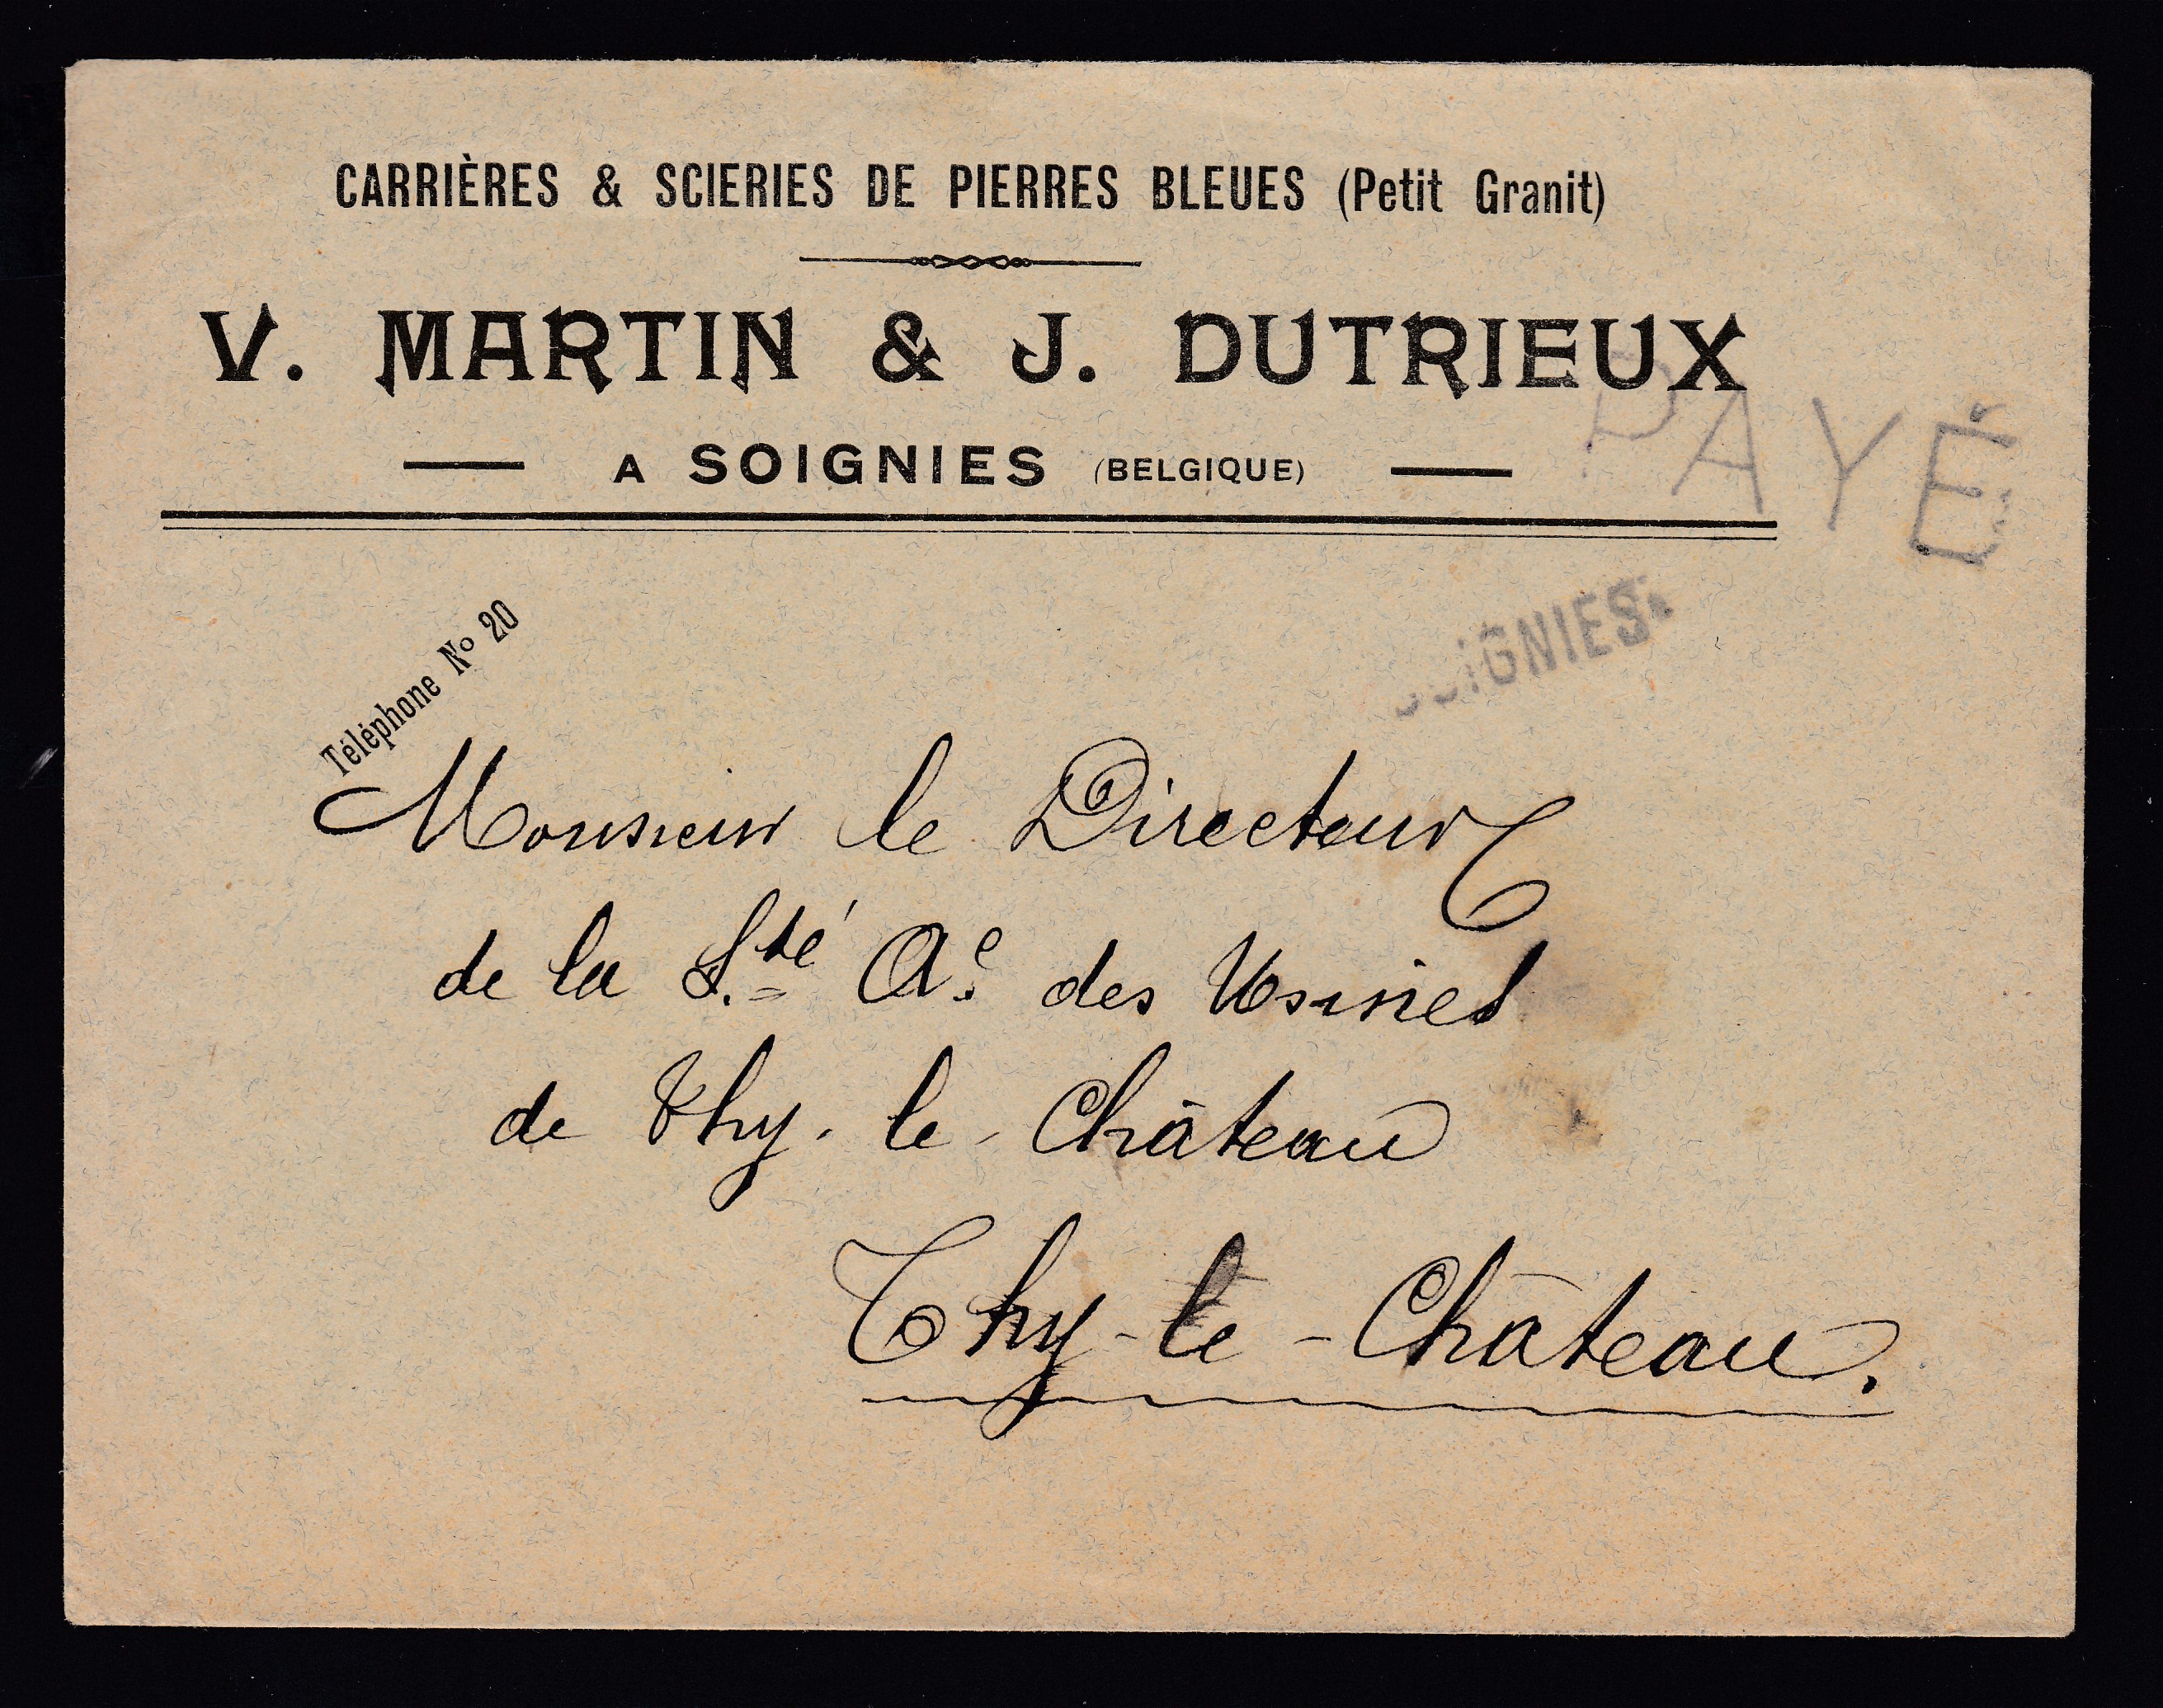 CARRIÈRES & SCIERIES DE PIERRES BLEUES (Petit Granit)
V. MARTIN & J. DUTRIEUX
A SOIGNIES (BELGIQUE)
PAYÉ
SOIGNIES
Téléphone No 20
Monsieur le Directeur
de la Sté Ae des Usines
de Thy-le-Château
Thy-le-Château.